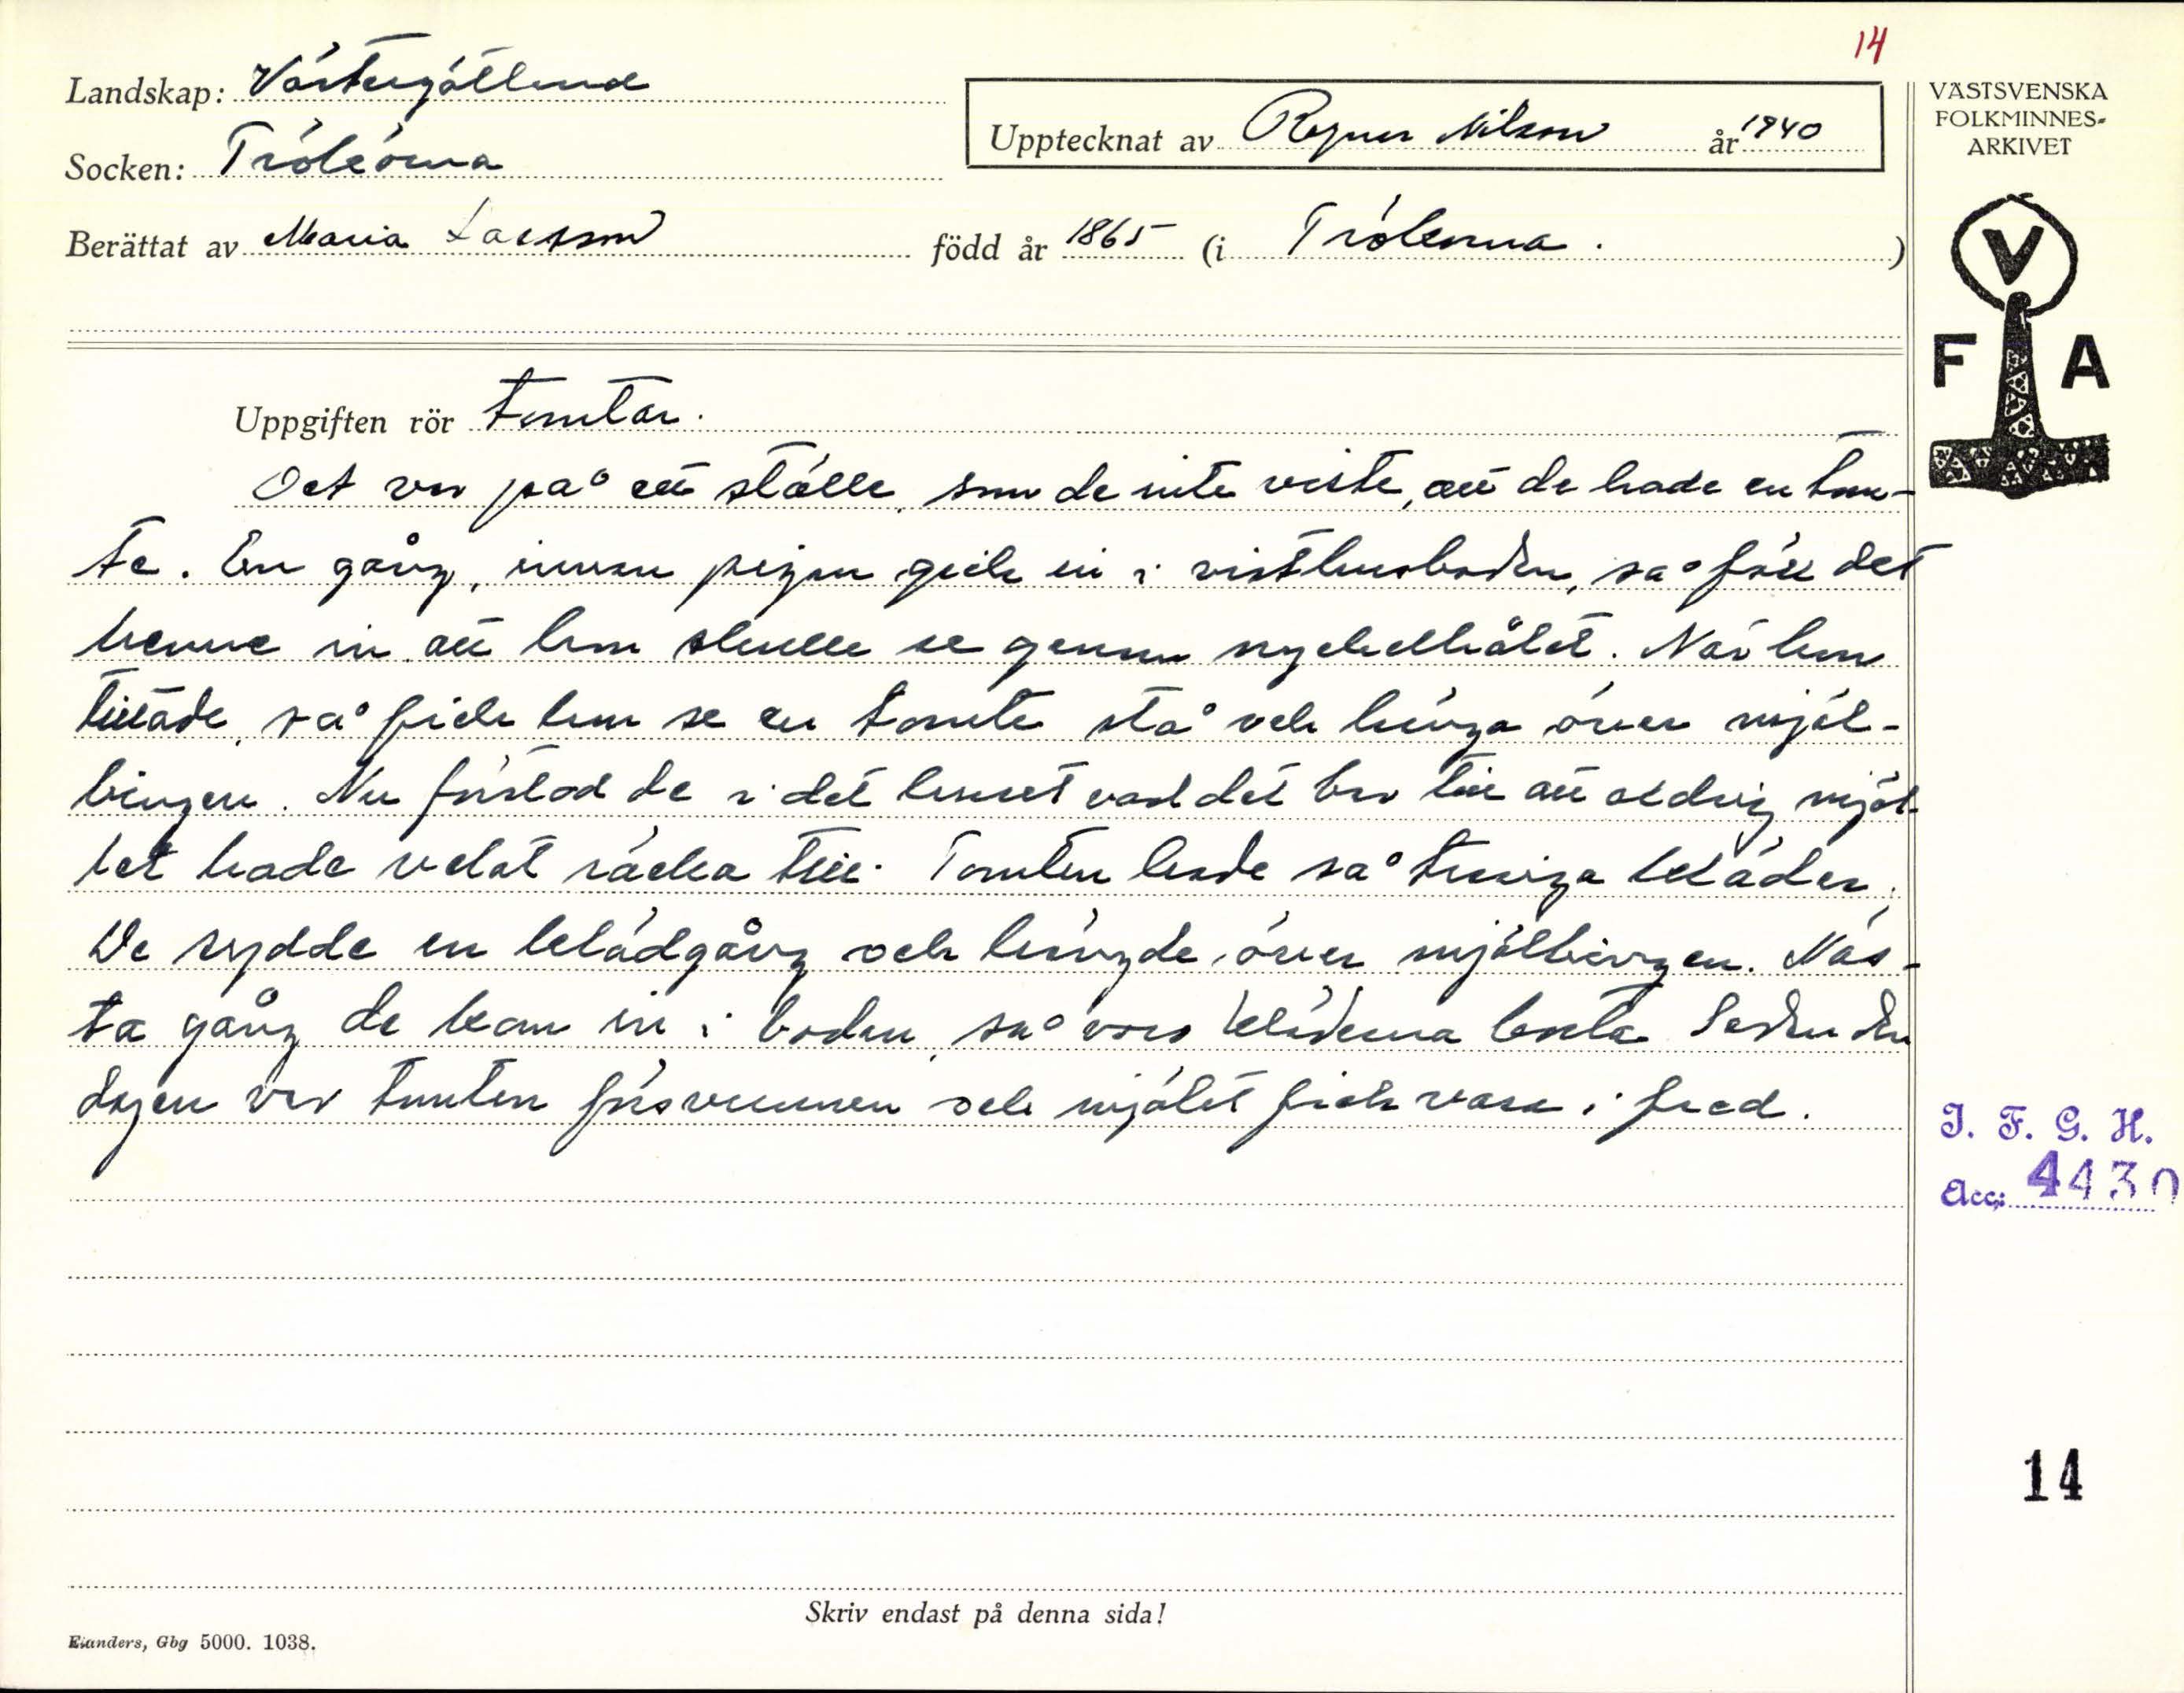 14
Landskap: Västergötland
Socken: Trökörna
Upptecknat av Ragnar Nilsson år 1940
Berättat av Maria Larsson född år 1865 (i Trökörna.)
VÄSTSVENSKA
FOLKMINNES-
ARKIVET
V
F A
Uppgiften rör tomtar.
Det var på ett ställe, som de inte visste, att de hade en tom-
te. En gång, innan pigan gick in i visthusboden, så föll det
henne in att hon skulle se genom nyckelhålet. När hon
tittade, så fick hon se en tomte stå och hänga över mjöl-
bingen. Nu förstod de i det huset vad det kom till att aldrig mjöl-
let hade velat räcka till. Tomten hade så trasiga kläder.
De sydde en klädgång och hängde över mjölbingen. Näs-
ta gång de kom in i boden, så voro kläderna borta. Sedan den
dagen var tomten försvunnen och mjölet fick vara i fred.
I. F. G. H.
Acc: 4430
14
Skriv endast på denna sida!
Elanders, Gbg 5000. 1038.